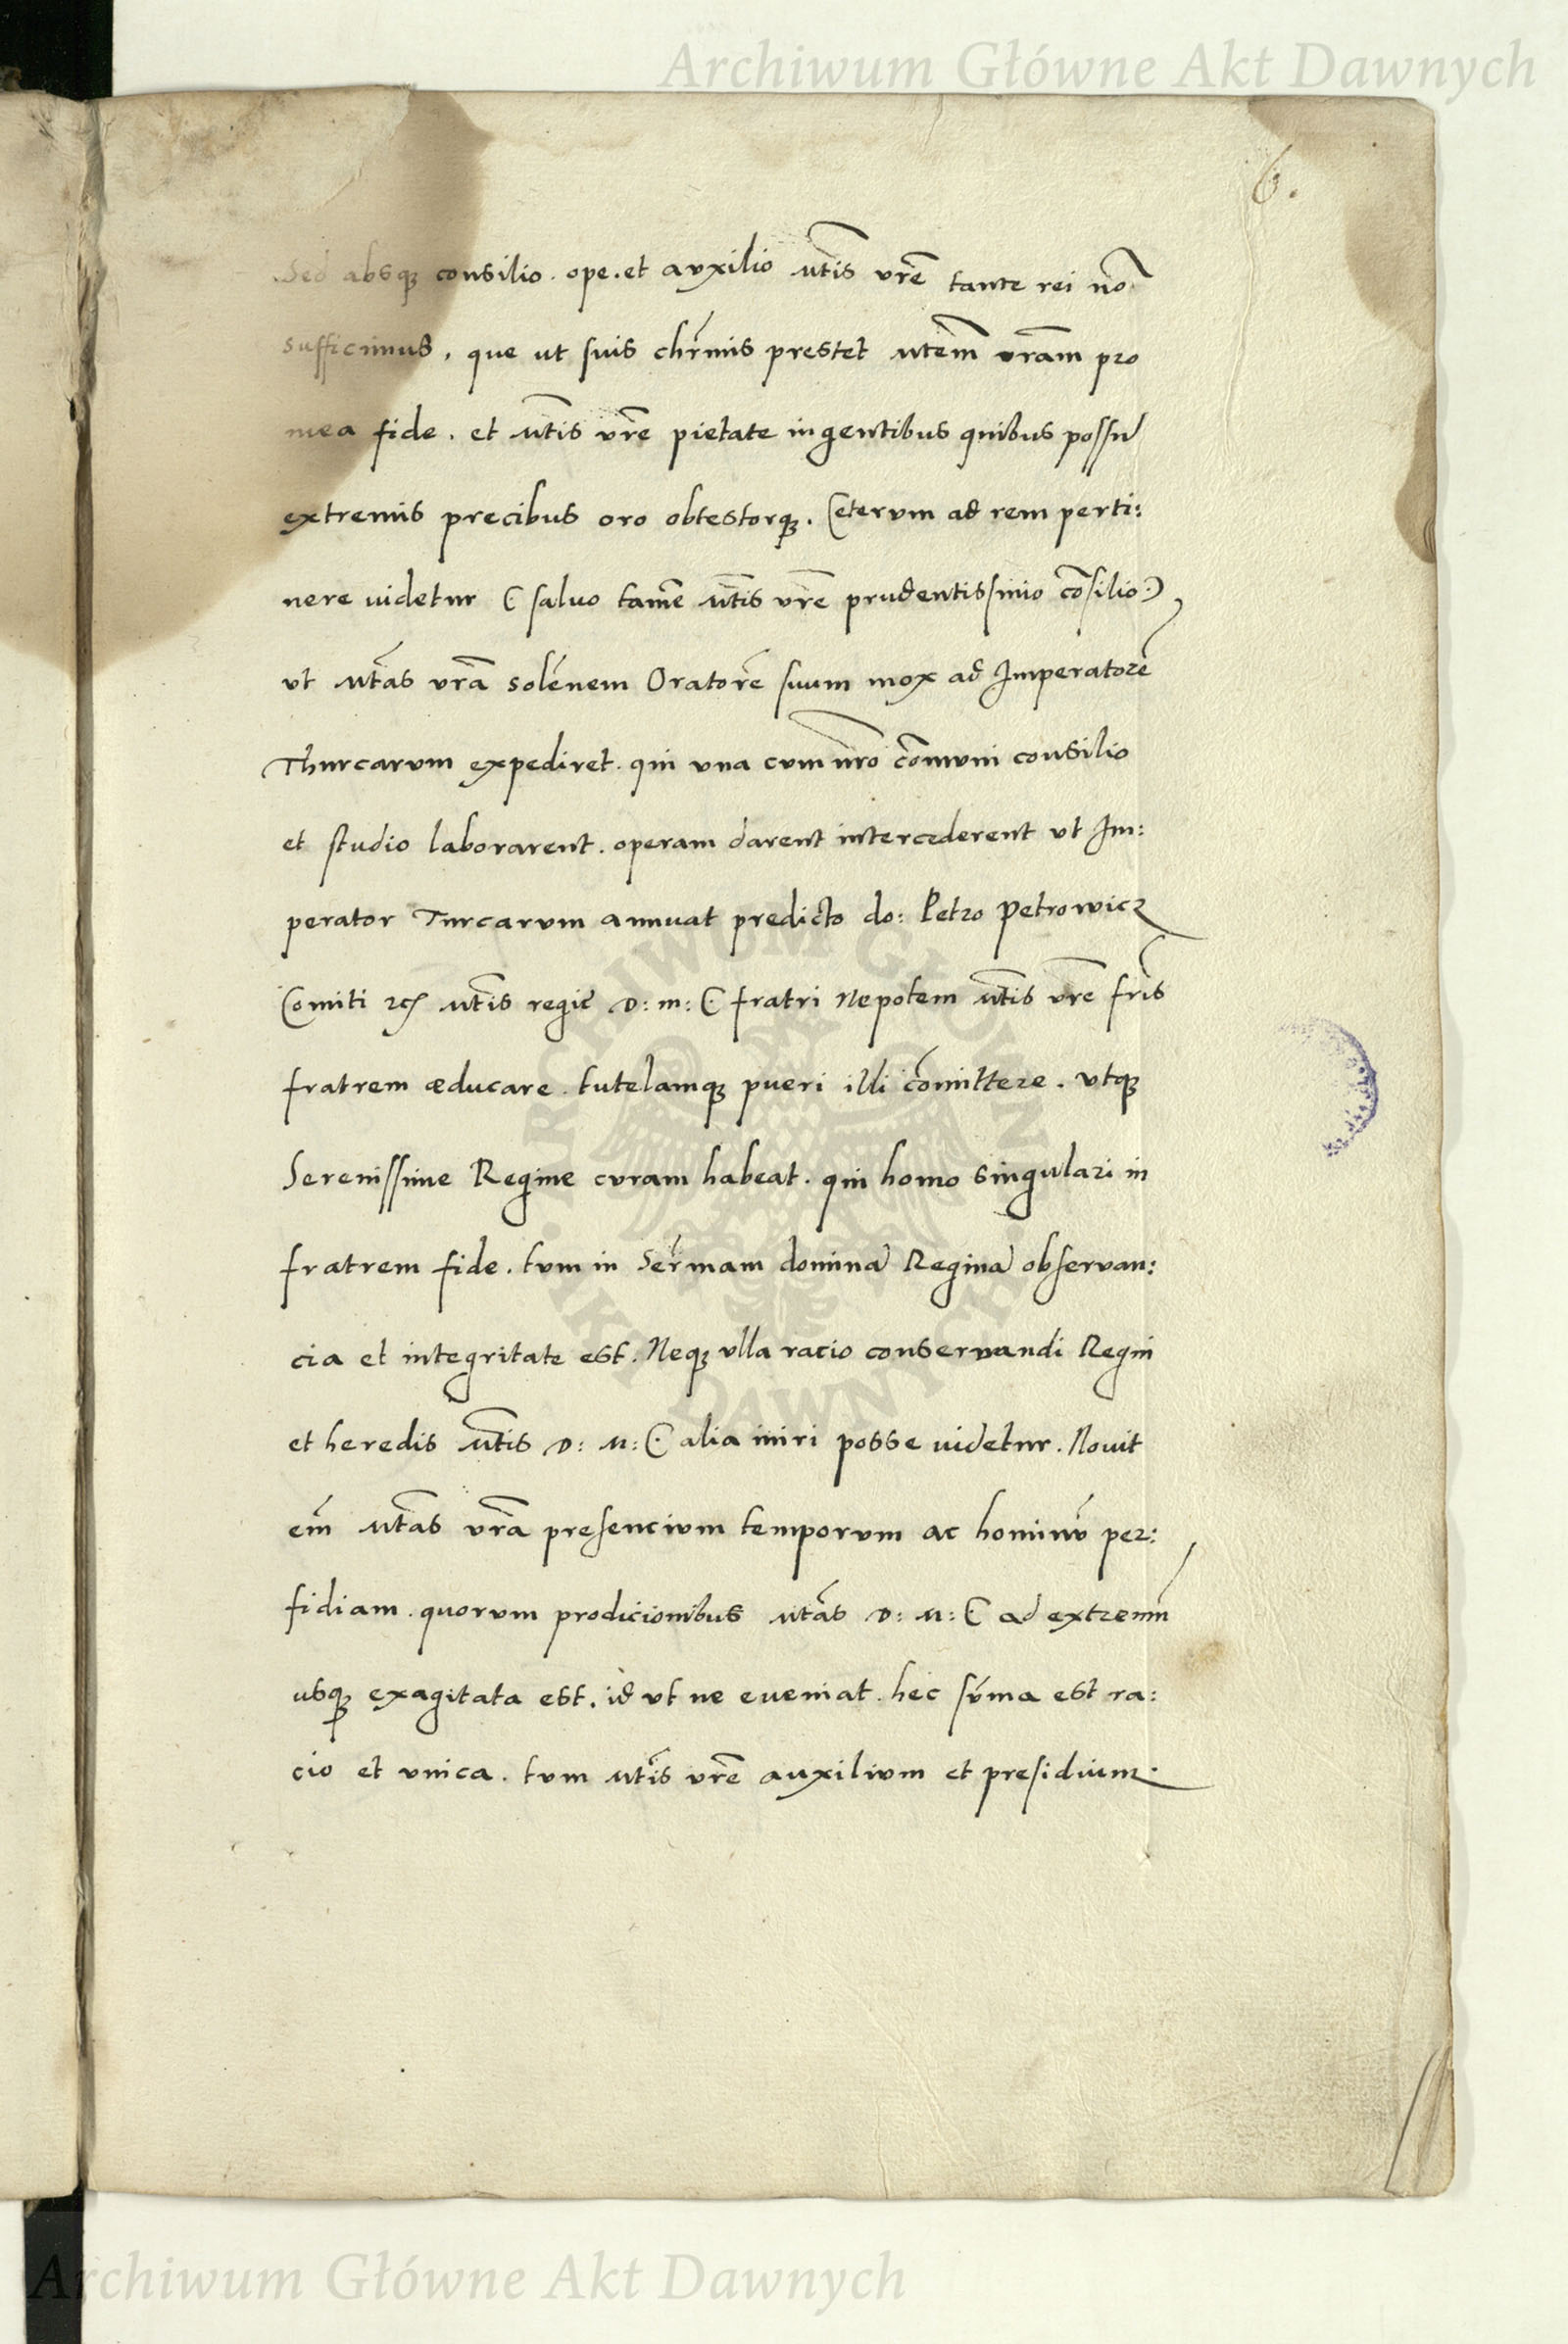 Archiwum Główne Akt Dawnych
6.
Sed absq; consilio . ope . et auxilio Mtis vrē tante rei nō
sufficimus , que ut suis chrmis prestet Mtem vram pro
mea fide . et Mtis vrē pietate ingentibus quibus possū
extremis precibus oro obtestorq; . Ceterum ad rem perti:
nere videtur (: salvo tamē Mtis vrē prudentissimo cōsilio :)
ut Mtas vrā solēnem Oratorē suum mox ad Imperatorē
Thurcarum expediret . qui una cum nrō cōmuni consilio
et studio laborarent . operam darent intercederent ut Im:
perator Turcarum annuat predicto do: Petro Petrowicz
Comiti Mtis regiē D: m: (: fratri Nepotem Mtis vrē fris
fratrem æducare . tutelamq; pueri illi cōmittere . utq;
Serenissime Regine curam habeat . qui homo singulari in
fratrem fide . tum in Sermam dominā Reginā observan:
cia et integritate est . Neq; ulla racio conservandi Regni
et heredis Mtis D: M: (: alia iniri posse videtur . Novit
em̄ Mtas vrā presencium temporum ac hominū per:
fidiam . quorum prodicionibus Mtas D: M: (: ad extremū
usq; exagitata est . id ut ne eveniat . hec sūma est ra:
cio et unica . tum Mtis vrē auxilium et presidium .
ARCHIWUM GŁÓWNE AKT DAWNYCH
Archiwum Główne Akt Dawnych